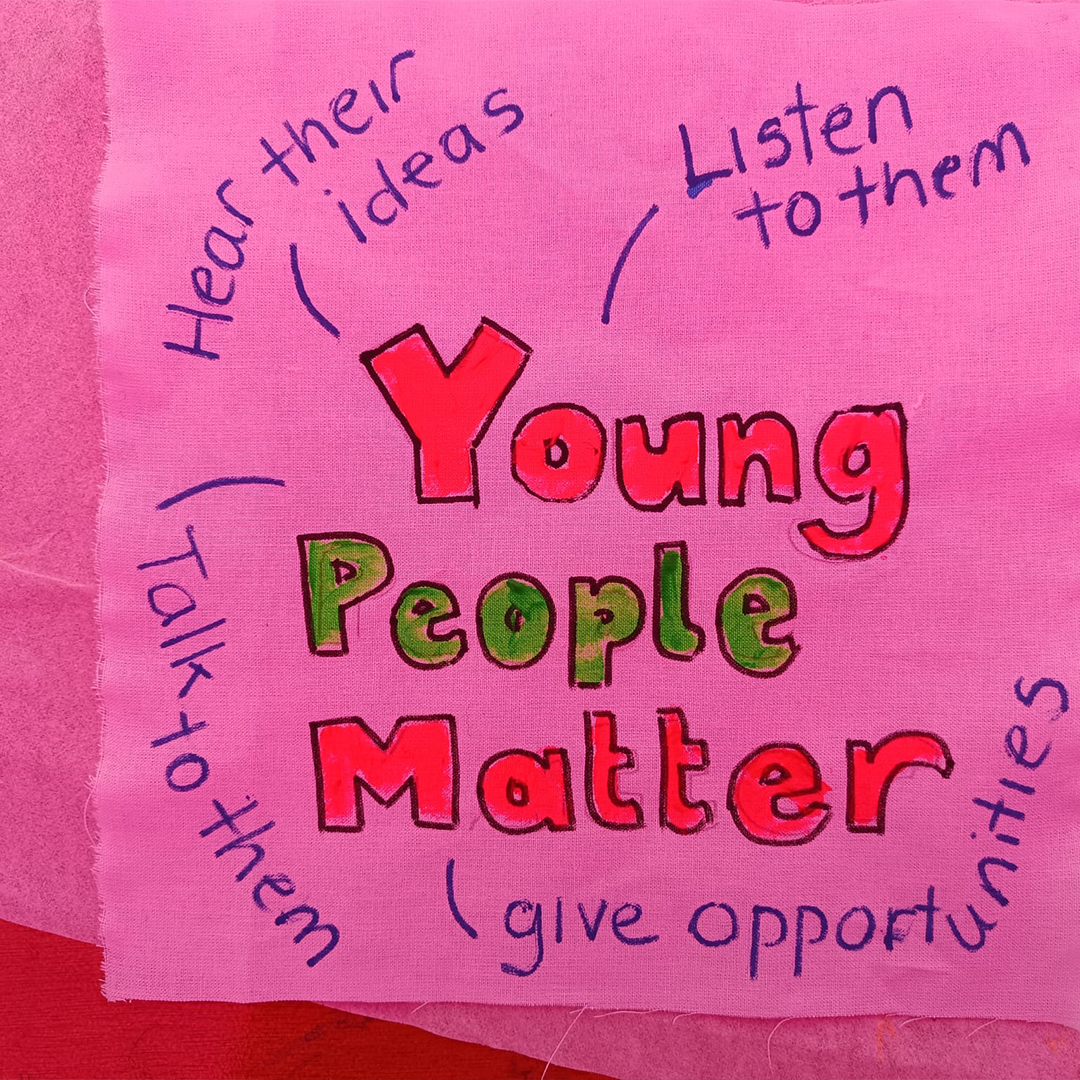 Hear their
ideas
Listen
to them
Young
People
Matter
Talk to them
give opportunities